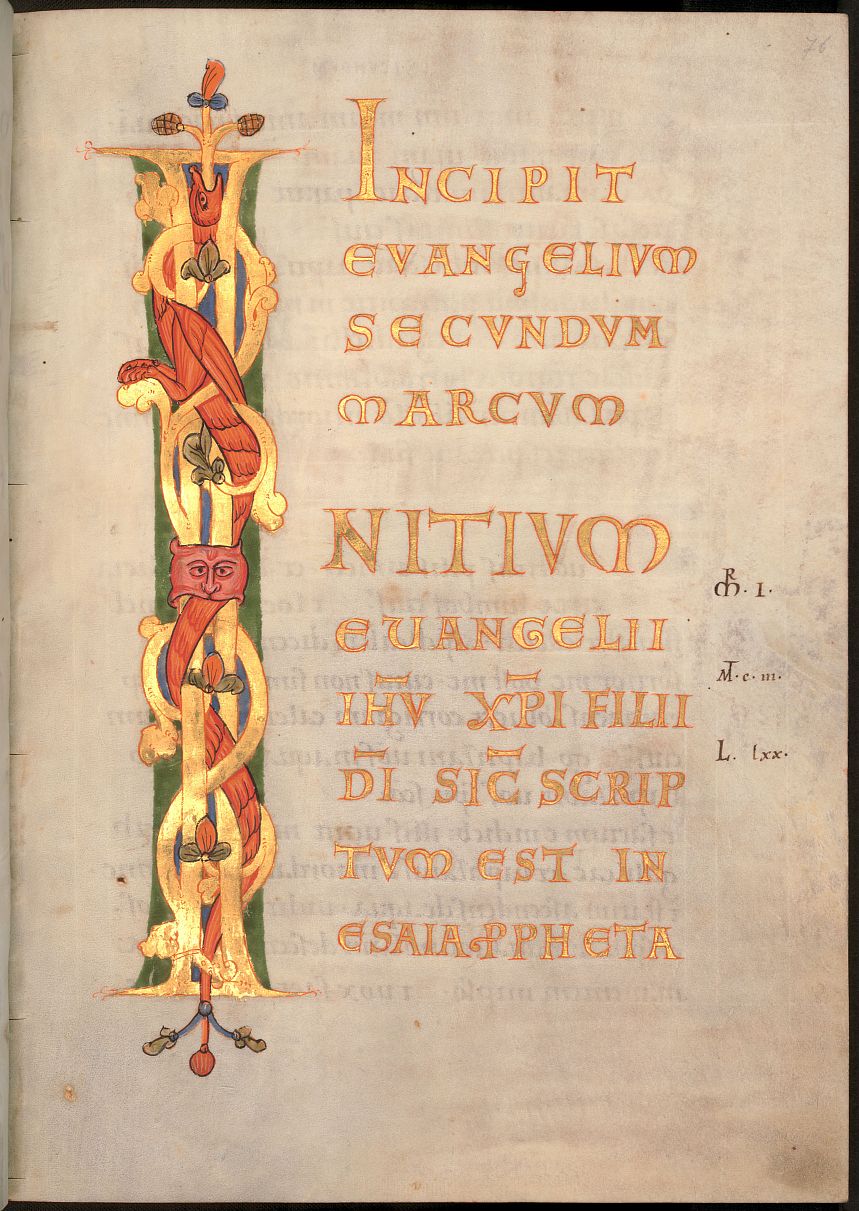 76
INCIPIT
EVANGELIVM
SECVNDVM
MARCVM
INITIVM
EVANGELII
IHV̅ XPI̅ FILII
DI̅ SIC̅ SCRIP
TVM EST IN
ESAIA PPHETA
MR. I.
MT. c. III.
L. lxx.